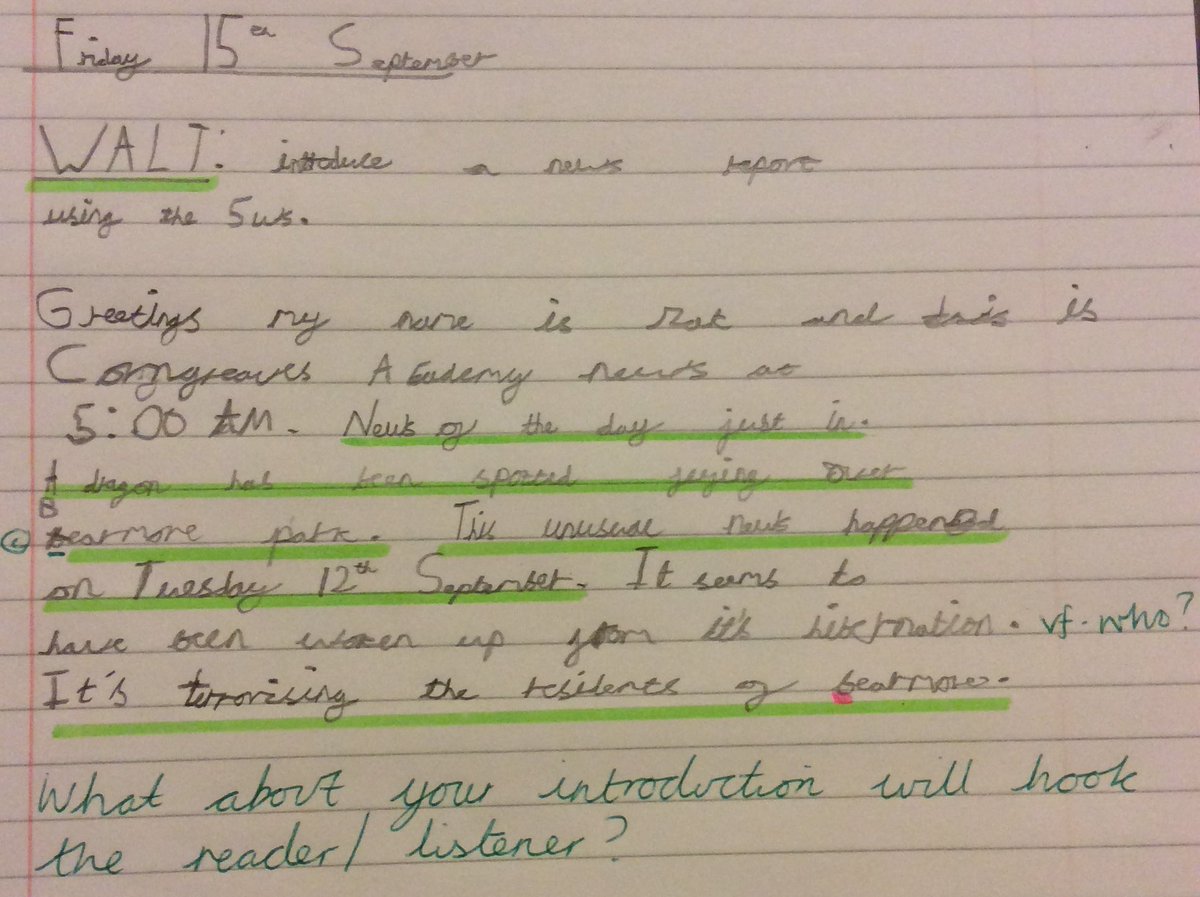 Friday 15th September
WALT: introduce a news report
using the 5ws.
Greetings my name is and this is
Corngreaves Academy news at
5:00 AM. News of the day just in.
A dragon has been spotted flying over
Bearmore park. This unusual news happened
on Tuesday 12th September. It seems to
have been woken up from it's hibernation. vf. who?
It's terrorising the residents of bearmore.
What about your introduction will hook
the reader/ listener?